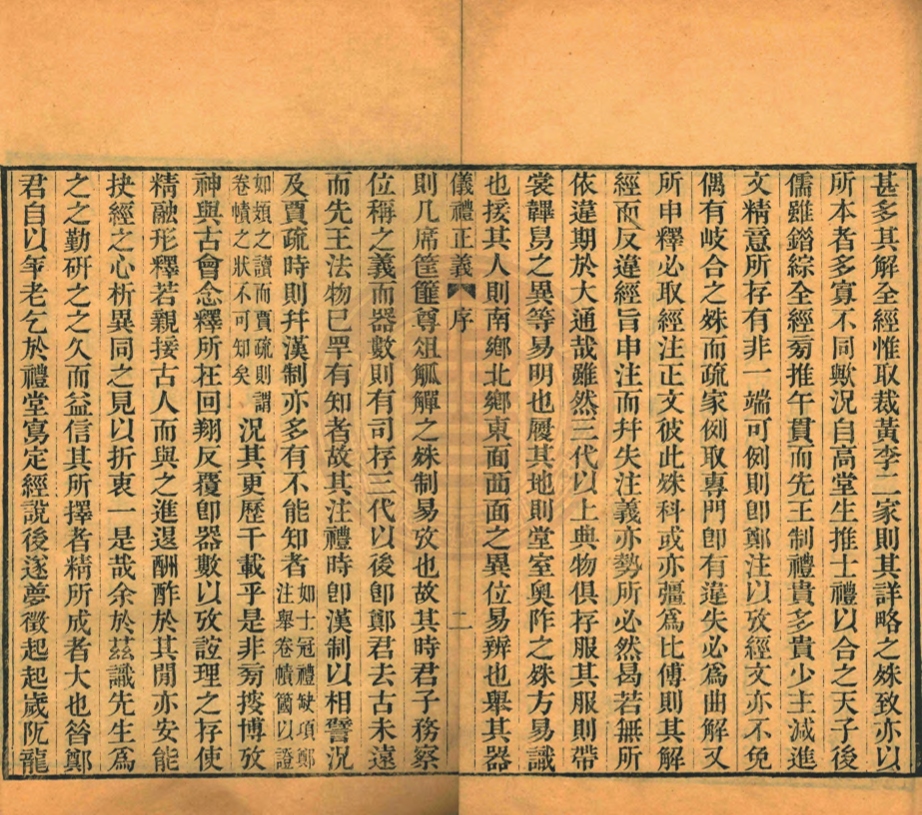 甚多其解全經惟取裁黃李二家則其詳略之殊致亦以
所本者多寡不同歟況自高堂生推士禮以合之天子後
儒雖錯綜全經㫄推午貫而先王制禮貴多貴少主減進
文精意所存有非一端可例則卽鄭注以攷經文亦不免
偶有岐合之殊而疏家例取專門卽有違失必爲曲解又
所申釋必取經注正文彼此殊科或亦彊爲比傅則其解
經而反違經旨申注而幷失注義亦勢所必然曷若無所
依違期於大通哉雖然三代以上典物俱存服其服則帶
裳韠舄之異等易明也履其地則堂室奧阼之殊方易識
也接其人則南鄉北鄉東面西面之異位易辨也舉其器
儀禮正義 序 二
則几席筐篚尊俎觚觶之殊制易攷也故其時君子務察
位稱之義而器數則有司存三代以後卽鄭君去古未遠
而先王法物已罕有知者故其注禮時卽漢制以相譬況
及賈疏時則幷漢制亦多有不能知者如士冠禮缺項鄭注舉卷幘簂以證
如頍之讀而賈疏則謂卷幘之狀不可知矣況其更歷千載乎是非㫄搜博攷
神與古會念釋所在回翔反覆卽器數以攷誼理之存使
精融形釋若親接古人而與之進退酬酢於其閒亦安能
抉經之心析異同之見以折衷一是哉余於茲識先生爲
之之勤硏之之久而益信其所擇者精所成者大也昝鄭
君自以年老乞於禮堂寫定經說後遂夢徵起起歲阨龍